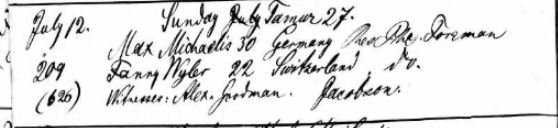 July 12. Sunday Tamuz 27.
Max Michaelis 30 Germany Res. Phx. Foreman
209 Fanny Wyler 22 Switzerland do.
(626) Witnesses: Alex. Goodman. Jacobson.